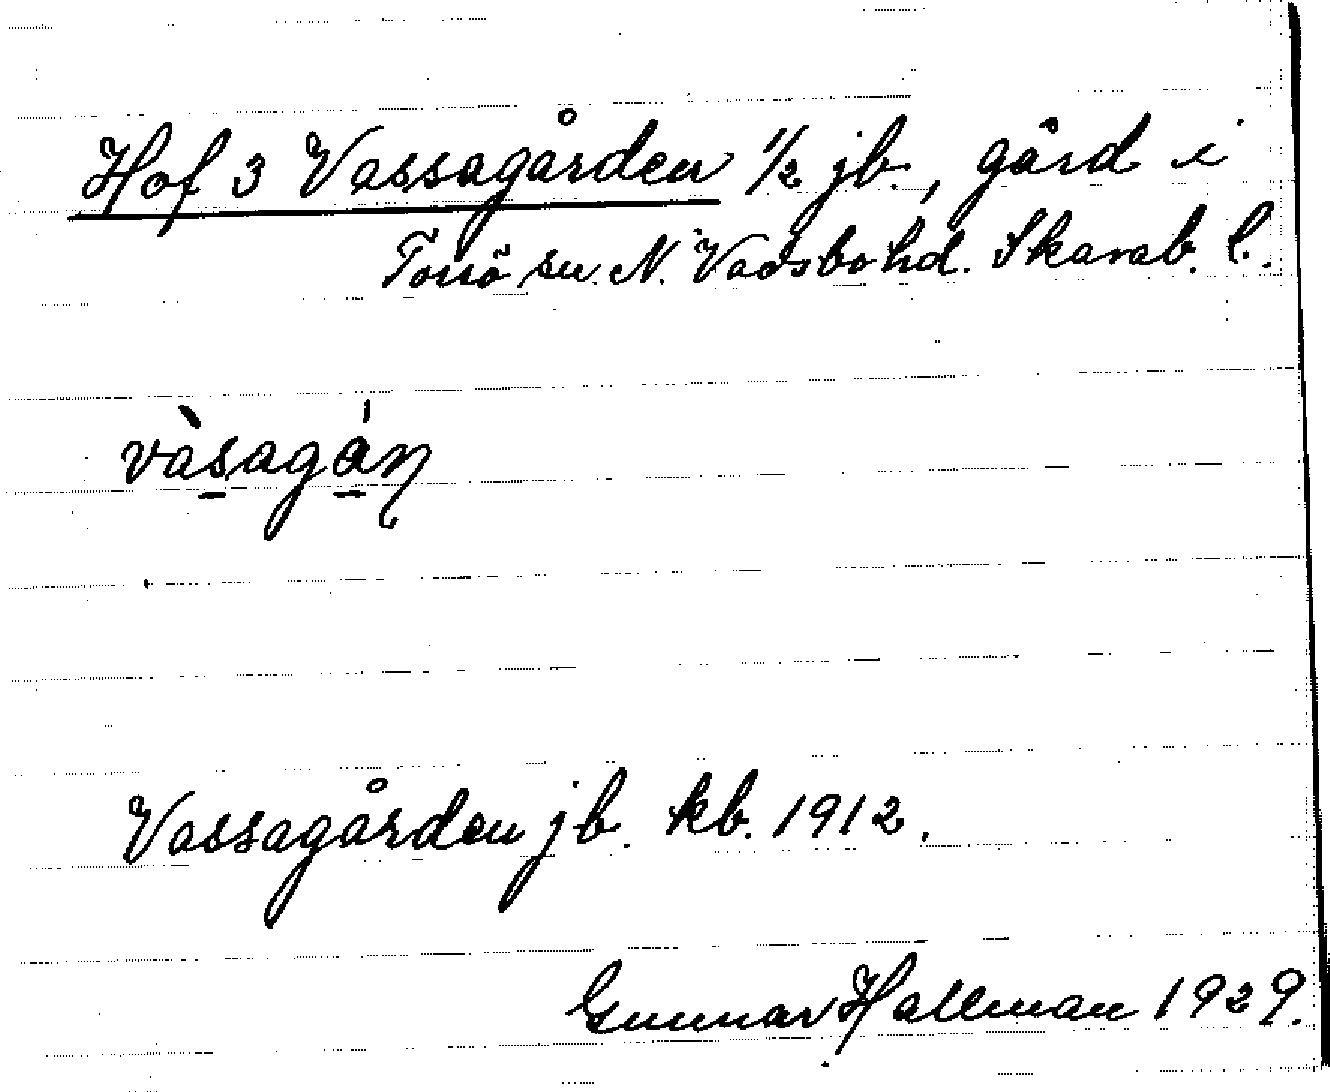 Hof 3 Vassagården 1/2 jb., gård i
Torsö sn. N. Vadsbo hd. Skarab. l.
vàs̱agá̱ɳ
Vassagården jb. kb. 1912.
Gunnar Hallman 1929.